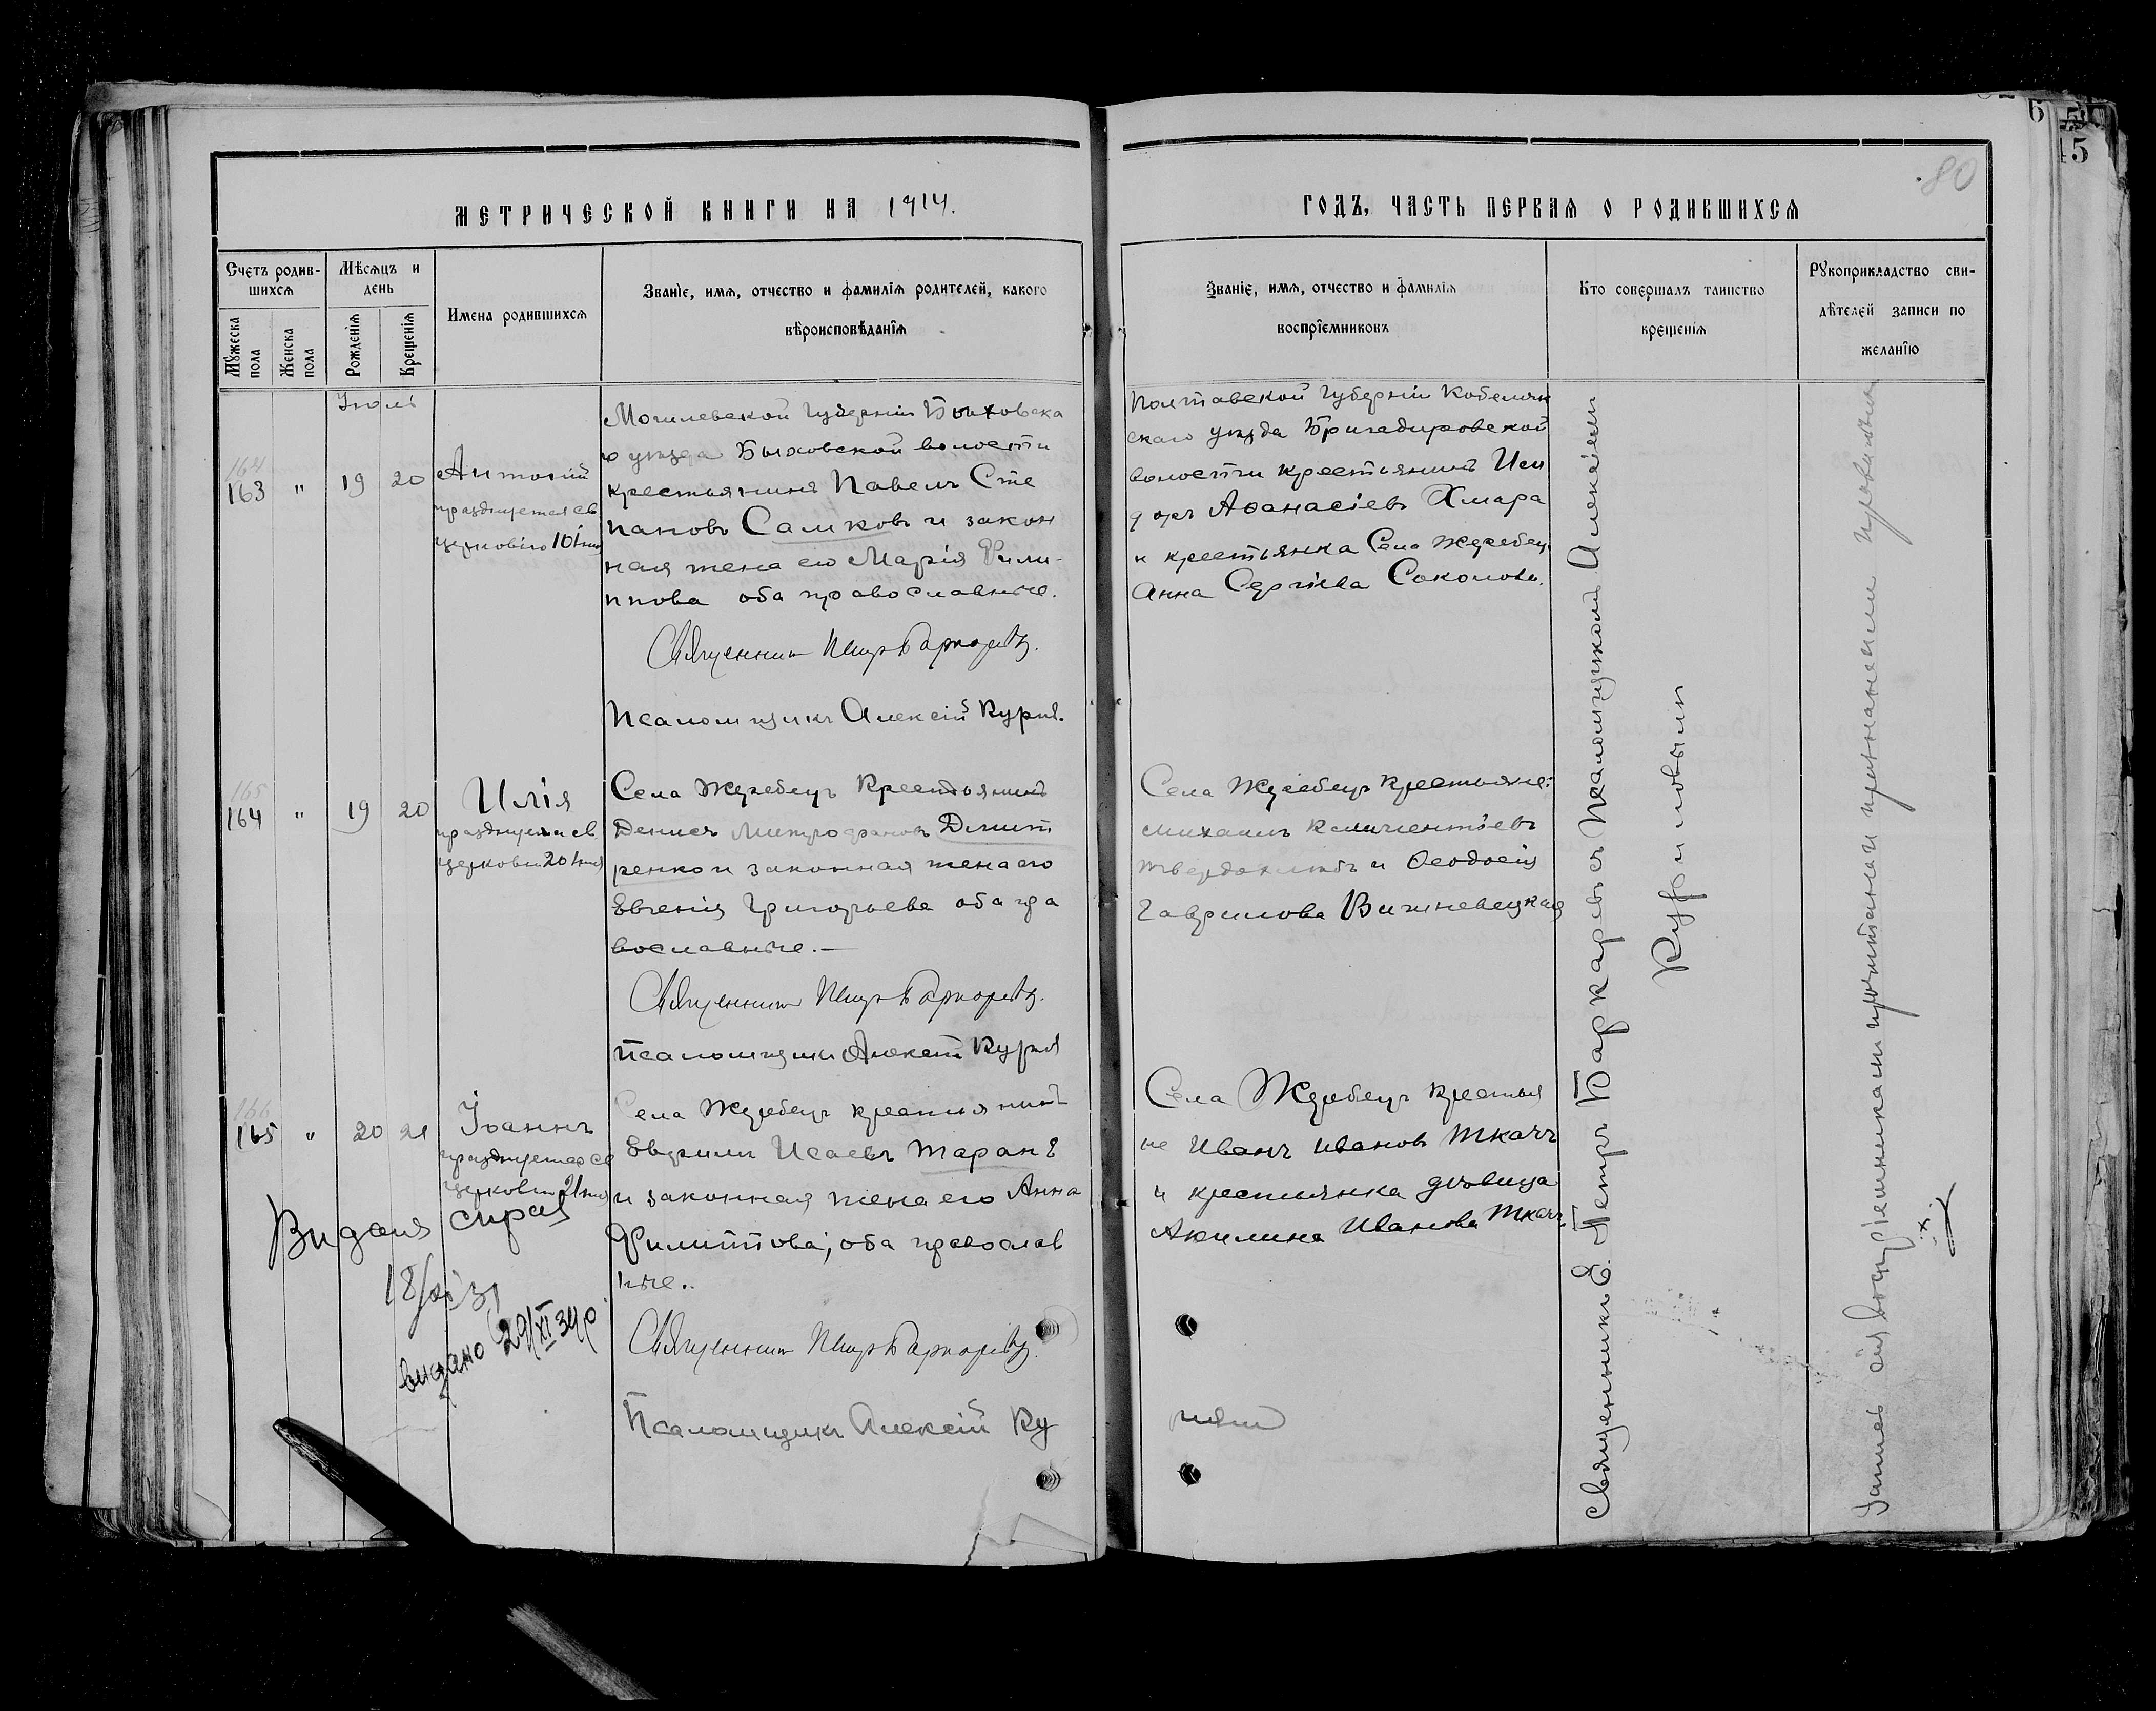 80
6
5
45
МЕТРИЧЕСКОЙ КНИГИ НА 1914.
ГОДЪ, ЧАСТЬ ПЕРВАЯ О РОДИВШИХСЯ
Счетъ родив-
шихся
Мужеска
пола
Женска
пола
Мѣсяцъ и
день
Рожденія
Крещенія
Имена родившихся
Званіе, имя, отчество и фамилія родителей, какого
вѣроисповѣданія
Званіе, имя, отчество и фамилія
воспріемниковъ
Кто совершалъ таинство
крещенія
Рукоприкладство сви-
дѣтелей записи по
желанію
Июль
164
163 " 19 20
Антоній
празднуется св
церковію 10 Іюля
Могилевской Губерніи Быховска
го уѣзда Быховской волости
крестьянинъ Павелъ Сте
пановъ Самковъ и закон
ная жена его Марія Фили-
ппова оба православные.
Священникъ Петръ Баркаревъ.
Псаломщикъ Алексій Курил.
Полтавской Губерніи Кобеляк
скаго уѣзда Бригадировской
волости крестьянинъ Иси
доръ Аѳанасіевъ Хмара
и крестьянка Села Жеребец
Анна Сергіева Соколова.
165
164 " 19 20
Илія
празднуется св
церковью 20 Іюля
Села Жеребецъ Крестьянинъ
Денисъ Митрофановъ Дмит
ренко и законная жена его
Евгенія Григорьева оба пра
вославные.—
Священникъ Петръ Баркаревъ.
Псаломщикъ Алексій Курил
Села Жеребецъ крестьяне:
Михаилъ Климентіевъ
Твердохлѣбъ и Ѳеодосія
Гаврилова Вишневецкая
166
165 " 20 21
Іоаннъ
празднуется св
церковью 21 Іюля
Села Жеребецъ крестьянинъ
Евфимъ Исаевъ Таранъ
и законная жена его Анна
Филиппова; оба православ
ные..
Священникъ Петръ Баркаревъ.
Псаломщикъ Алексій Ку
Села Жеребецъ крестья
не Иванъ Ивановъ Ткачъ
и крестьянка дѣвица
Акилина Иванова Ткачъ.
Видана
видано 29/XI 34 р.
Священникъ Петръ Баркаревъ съ Псаломщикомъ Алексіем
Куриловымъ
воспріемниками прочитана и признанаею правильна